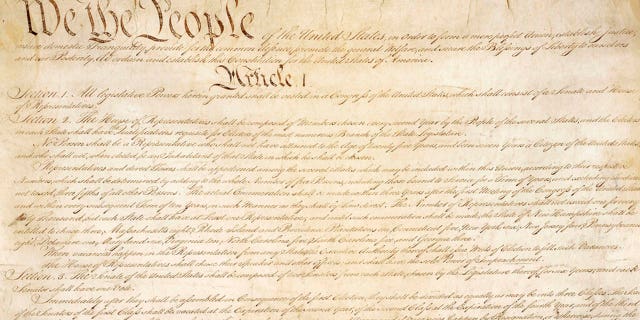 We the People of the United States, in Order to form a more perfect Union, establish Justice,
insure domestic Tranquility, provide for the common defence, promote the general Welfare, and secure the Blessings of Liberty to ourselves
and our Posterity, do ordain and establish this Constitution for the United States of America.
Article I.
Section. 1. All legislative Powers herein granted shall be vested in a Congress of the United States, which shall consist of a Senate and House
of Representatives.
Section. 2. The House of Representatives shall be composed of Members chosen every second Year by the People of the several States, and the Electors
in each State shall have Qualifications requisite for Electors of the most numerous Branch of the State Legislature.
No Person shall be a Representative who shall not have attained to the Age of twenty five Years, and been seven Years a Citizen of the United States,
and who shall not, when elected, be an Inhabitant of that State in which he shall be chosen.
Representatives and direct Taxes shall be apportioned among the several States which may be included within this Union, according to their respective
Numbers, which shall be determined by adding to the whole Number of free Persons, including those bound to Service for a Term of Years, and excluding Indians
not taxed, three fifths of all other Persons. The actual Enumeration shall be made within three Years after the first Meeting of the Congress of the United States,
and within every subsequent Term of ten Years, in such Manner as they shall by Law direct. The Number of Representatives shall not exceed one for every
thirty Thousand, but each State shall have at Least one Representative; and until such enumeration shall be made, the State of New Hampshire shall be
entitled to chuse three, Massachusetts eight, Rhode Island and Providence Plantations one, Connecticut five, New York six, New Jersey four, Pennsylvania
eight, Delaware one, Maryland six, Virginia ten, North Carolina five, South Carolina five, and Georgia three.
When vacancies happen in the Representation from any State, the Executive Authority thereof shall issue Writs of Election to fill such Vacancies.
The House of Representatives shall chuse their Speaker and other Officers; and shall have the sole Power of Impeachment.
Section. 3. The Senate of the United States shall be composed of two Senators from each State, chosen by the Legislature thereof, for six Years; and each
Senator shall have one Vote.
Immediately after they shall be assembled in Consequence of the first Election, they shall be divided as equally as may be into three Classes. The
of the Senators of the first Class shall be vacated at the Expiration of the second Year, of the second Class at the Expiration of the fourth Year, and of the third